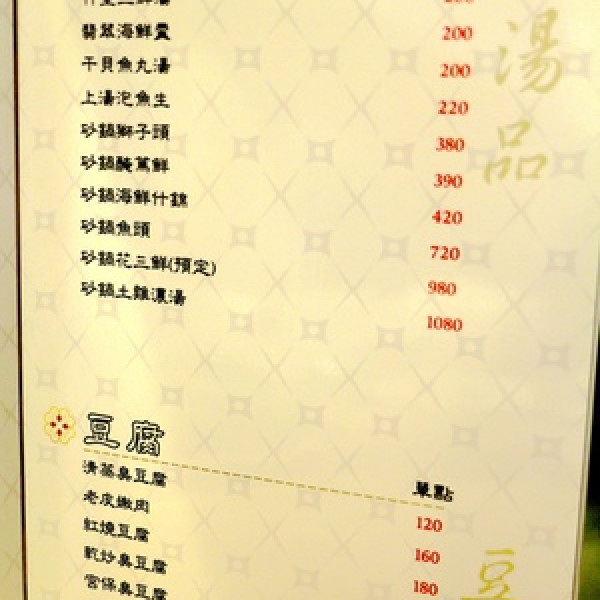 200
翡翠海鮮羹 200
干貝魚丸湯 200
上湯泡魚生 220
砂鍋獅子頭 380
砂鍋醃篤鮮 390
砂鍋海鮮什錦 420
砂鍋魚頭 720
砂鍋花三鮮(預定) 980
砂鍋土雞濃湯 1080
湯品
豆腐
單點
清蒸臭豆腐 120
老皮嫩肉 160
紅燒豆腐 180
乾炒臭豆腐
宮保臭豆腐
豆